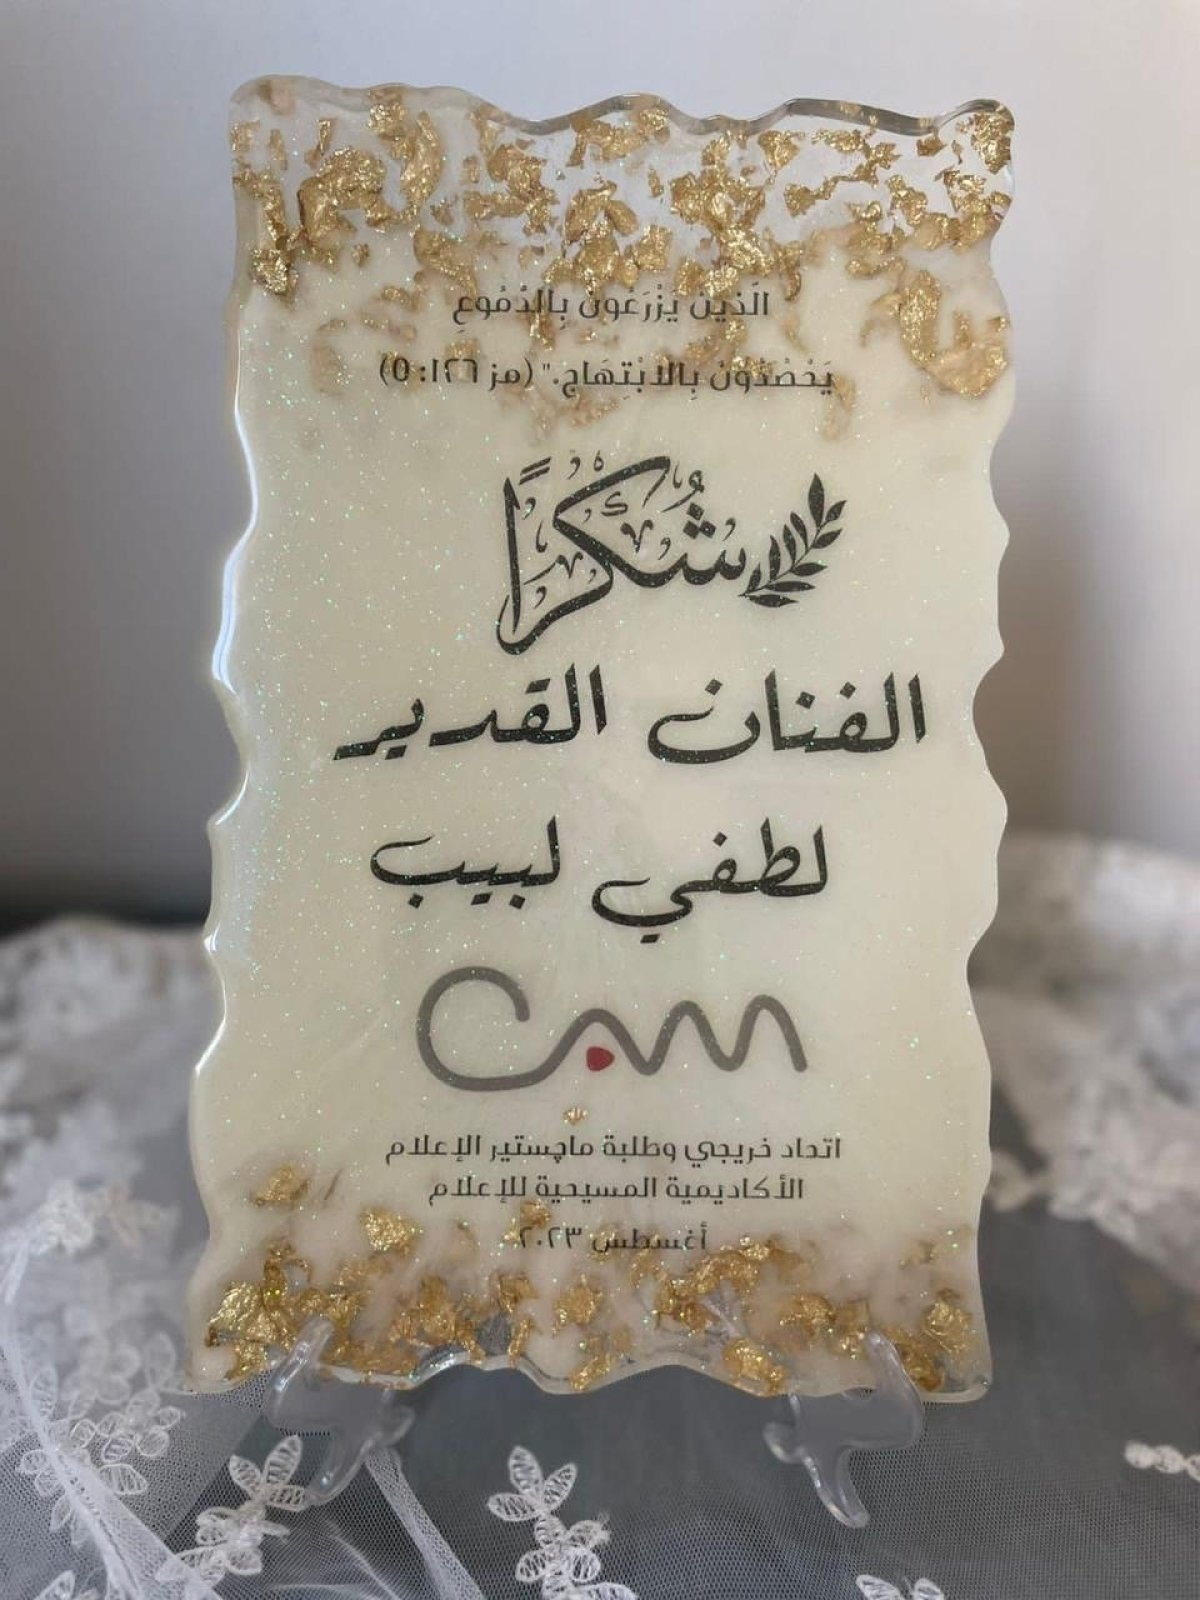 الَّذِينَ يَزْرَعُونَ بِالدُّمُوعِ
يَحْصُدُونَ بِالابْتِهَاجِ." (مز ١٢٦: ٥)
شُكْرًا
الفنان القدير
لطفي لبيب
cam
اتحاد خريجي وطلبة ماچستير الإعلام
الأكاديمية المسيحية للإعلام
أغسطس ٢٠٢٣